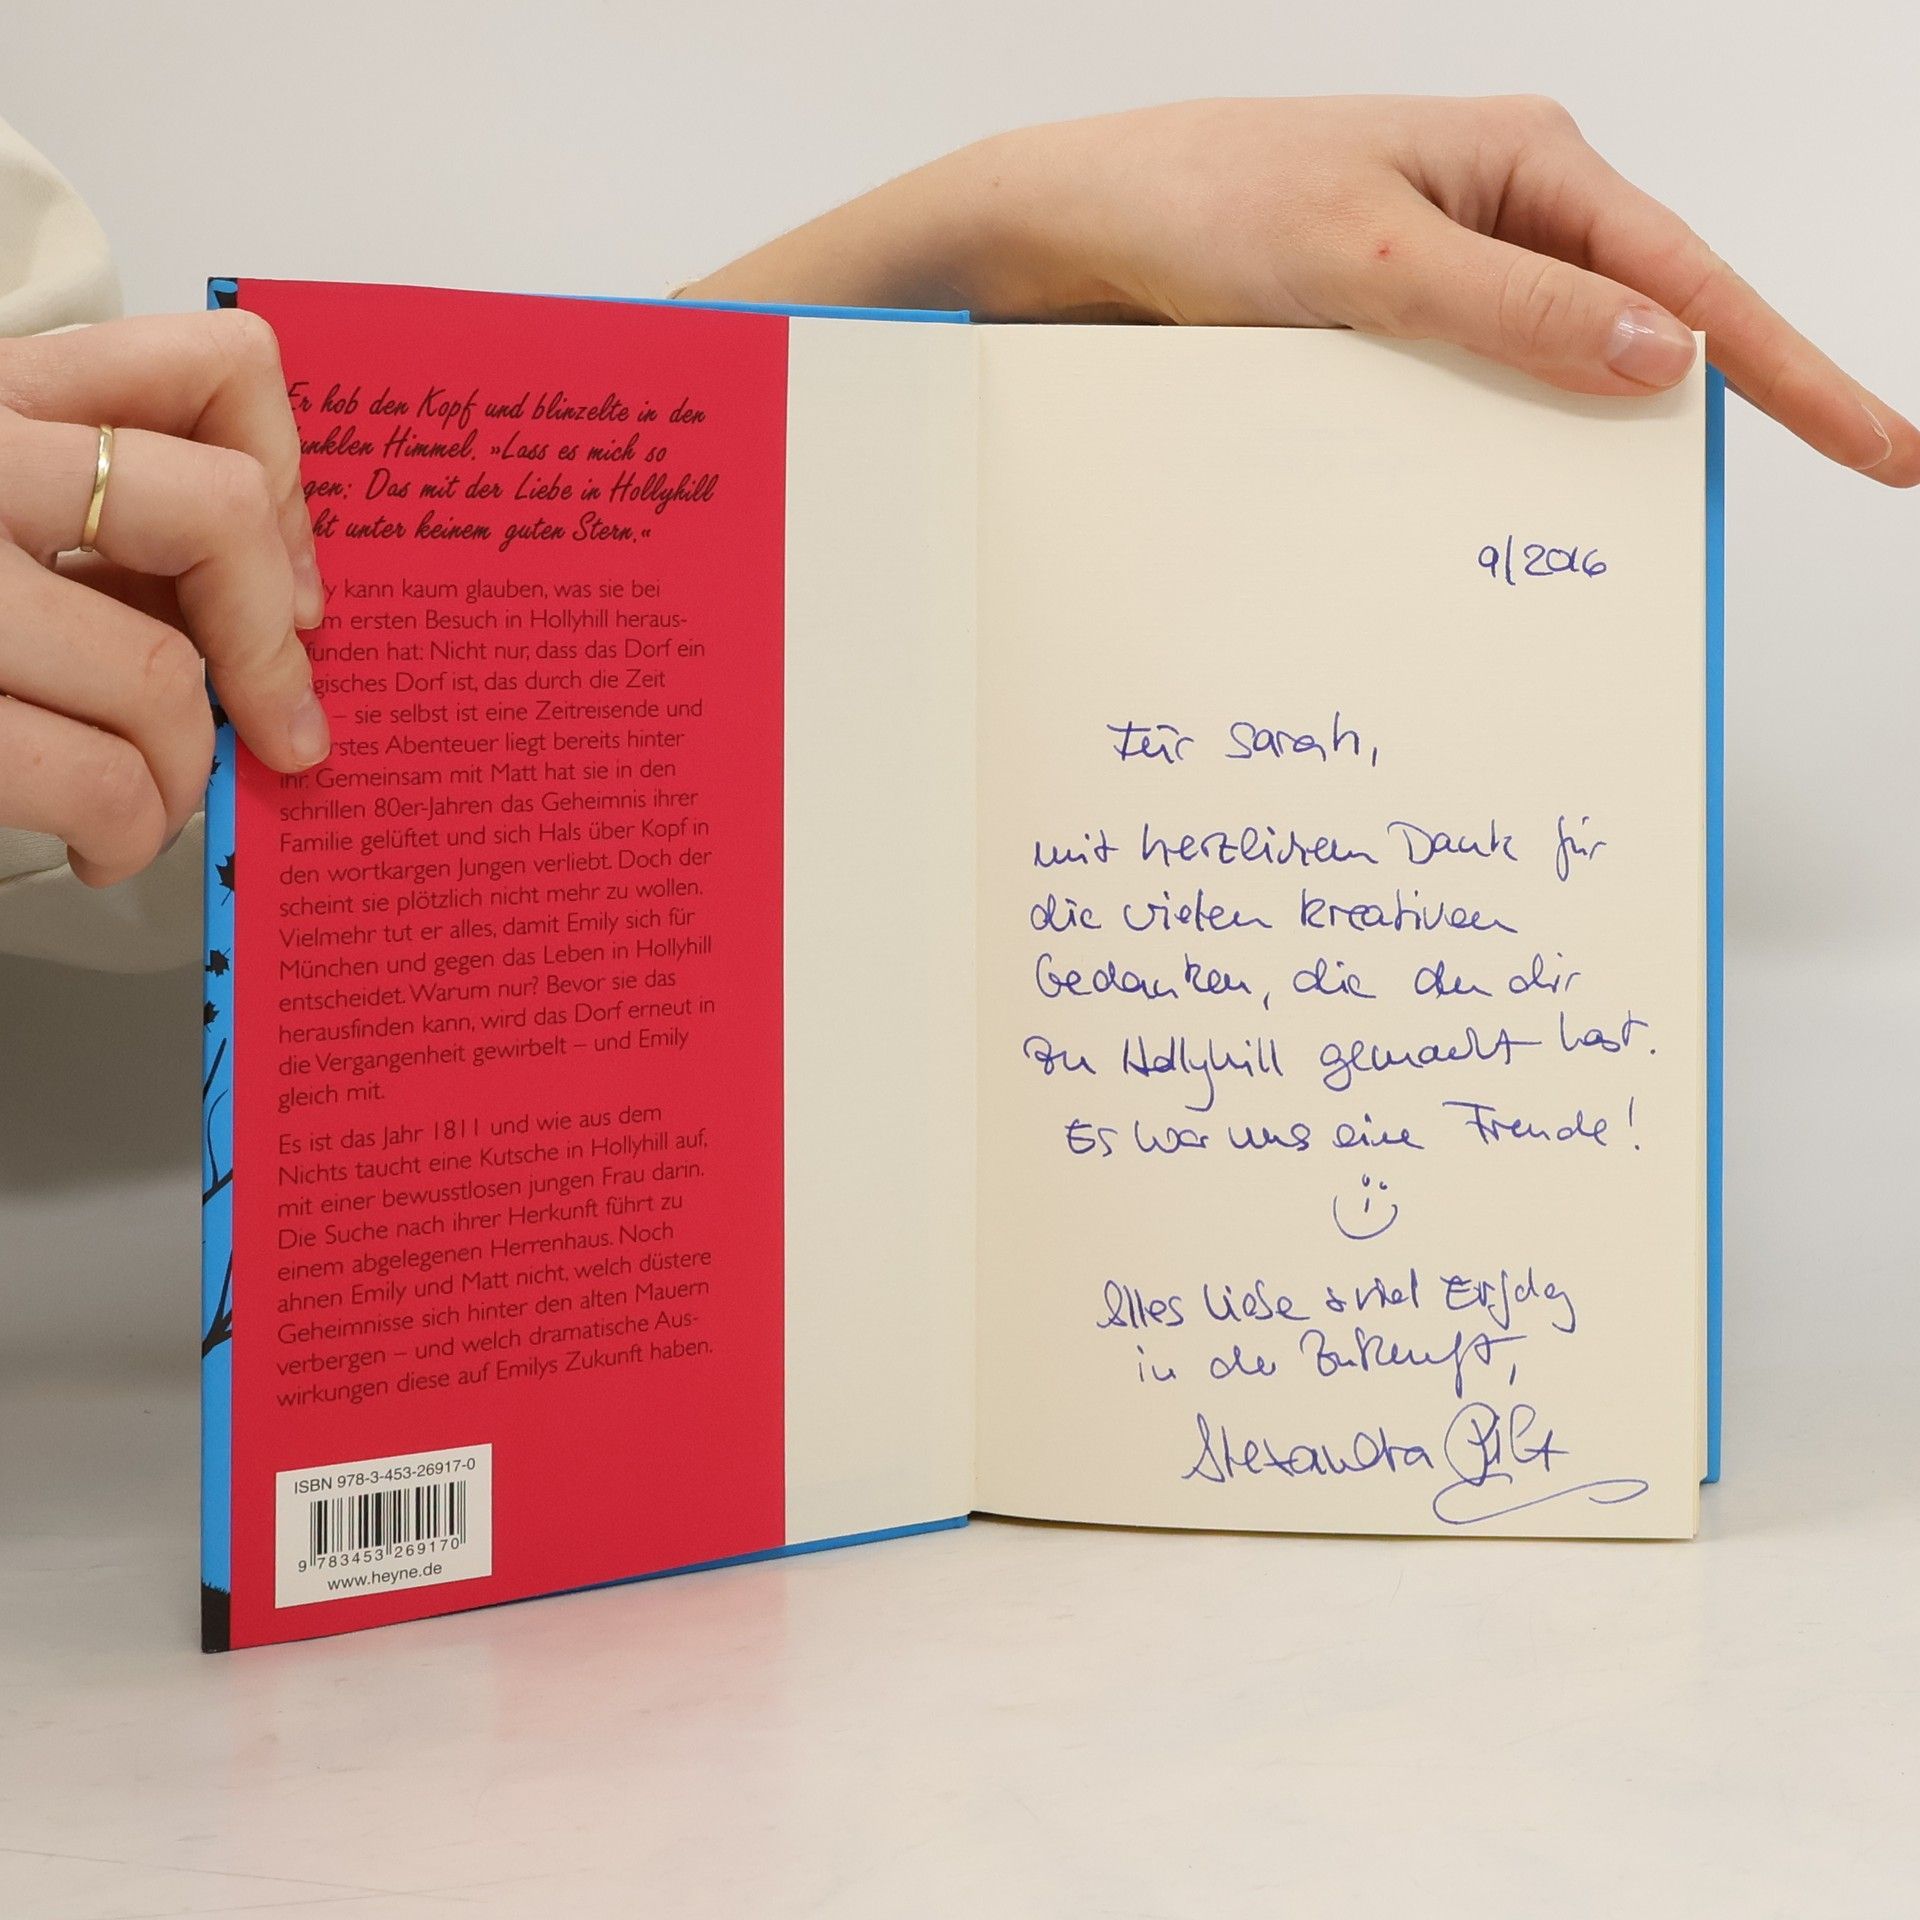 Er hob den Kopf und blinzelte in den
unklen Himmel. »Lass es mich so
gen: Das mit der Liebe in Hollyhill
ht unter keinem guten Stern.«
y kann kaum glauben, was sie bei
m ersten Besuch in Hollyhill heraus-
funden hat: Nicht nur, dass das Dorf ein
gisches Dorf ist, das durch die Zeit
– sie selbst ist eine Zeitreisende und
rstes Abenteuer liegt bereits hinter
ihr. Gemeinsam mit Matt hat sie in den
schrillen 80er-Jahren das Geheimnis ihrer
Familie gelüftet und sich Hals über Kopf in
den wortkargen Jungen verliebt. Doch der
scheint sie plötzlich nicht mehr zu wollen.
Vielmehr tut er alles, damit Emily sich für
München und gegen das Leben in Hollyhill
entscheidet. Warum nur? Bevor sie das
herausfinden kann, wird das Dorf erneut in
die Vergangenheit gewirbelt – und Emily
gleich mit.
Es ist das Jahr 1811 und wie aus dem
Nichts taucht eine Kutsche in Hollyhill auf,
mit einer bewusstlosen jungen Frau darin.
Die Suche nach ihrer Herkunft führt zu
einem abgelegenen Herrenhaus. Noch
ahnen Emily und Matt nicht, welch düstere
Geheimnisse sich hinter den alten Mauern
verbergen – und welch dramatische Aus-
wirkungen diese auf Emilys Zukunft haben.
ISBN 978-3-453-26917-0
9 783453 269170
www.heyne.de
9/2016
Für Sarah,
mit herzlichem Dank für
die vielen kreativen
Gedanken, die du dir
zu Hollyhill gemacht hast.
Es war uns eine Freude!
Alles Liebe & viel Erfolg
in der Zukunft,
Alexandra Pilz